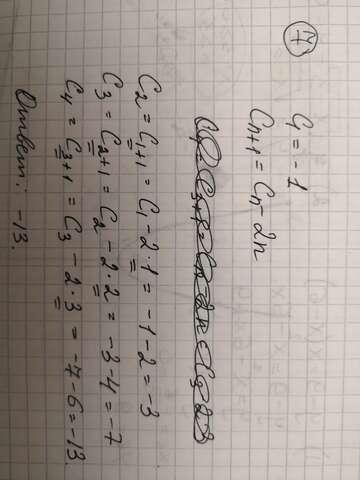 17
C₁ = -1
Cₙ₊₁ = Cₙ - 2n
C₂ = C₁₊₁ = C₁ - 2·1 = -1 - 2 = -3
C₃ = C₂₊₁ = C₂ - 2·2 = -3 - 4 = -7
C₄ = C₃₊₁ = C₃ - 2·3 = -7 - 6 = -13
Ответ: -13.